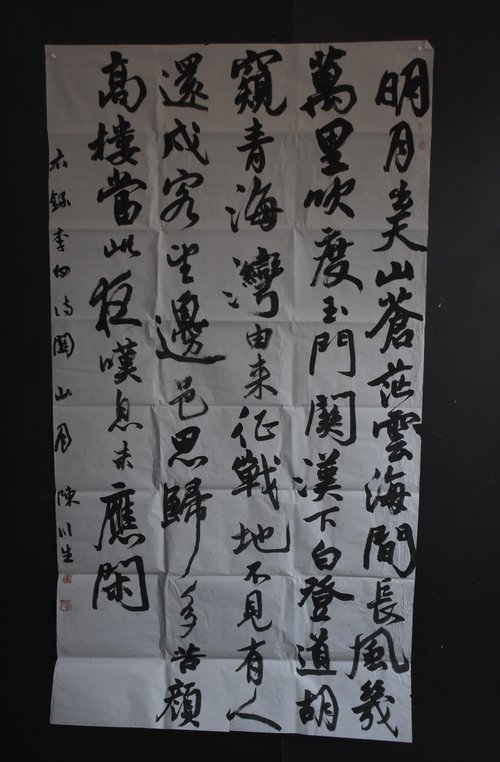 明月出天山蒼茫雲海間長風幾
萬里吹度玉門關漢下白登道胡
窺青海灣由来征戰地不見有人
還戍客望邊邑思歸多苦顔
高樓當此夜嘆息未應閑
右録李白詩關山月 陳川生